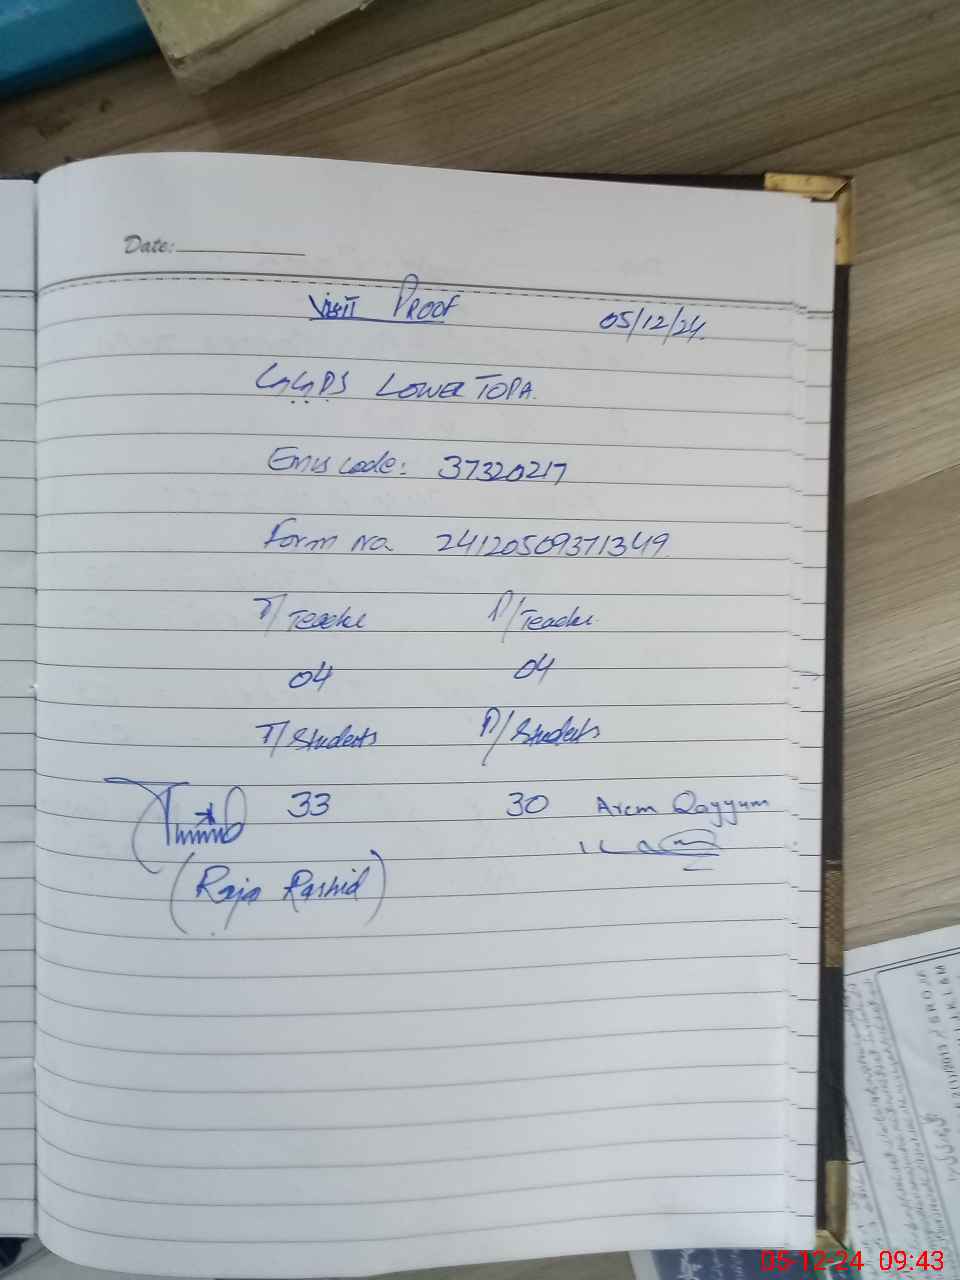 Date:
Visit Proof 05/12/24.
GGPS Lower Topa.
Emis code: 37320217
Form no. 24120509371349
T/Teacher P/Teacher
04 04
T/Students P/Students
33 30 Arem Qayyum
(Raja Rashid)
05-12-24 09:43